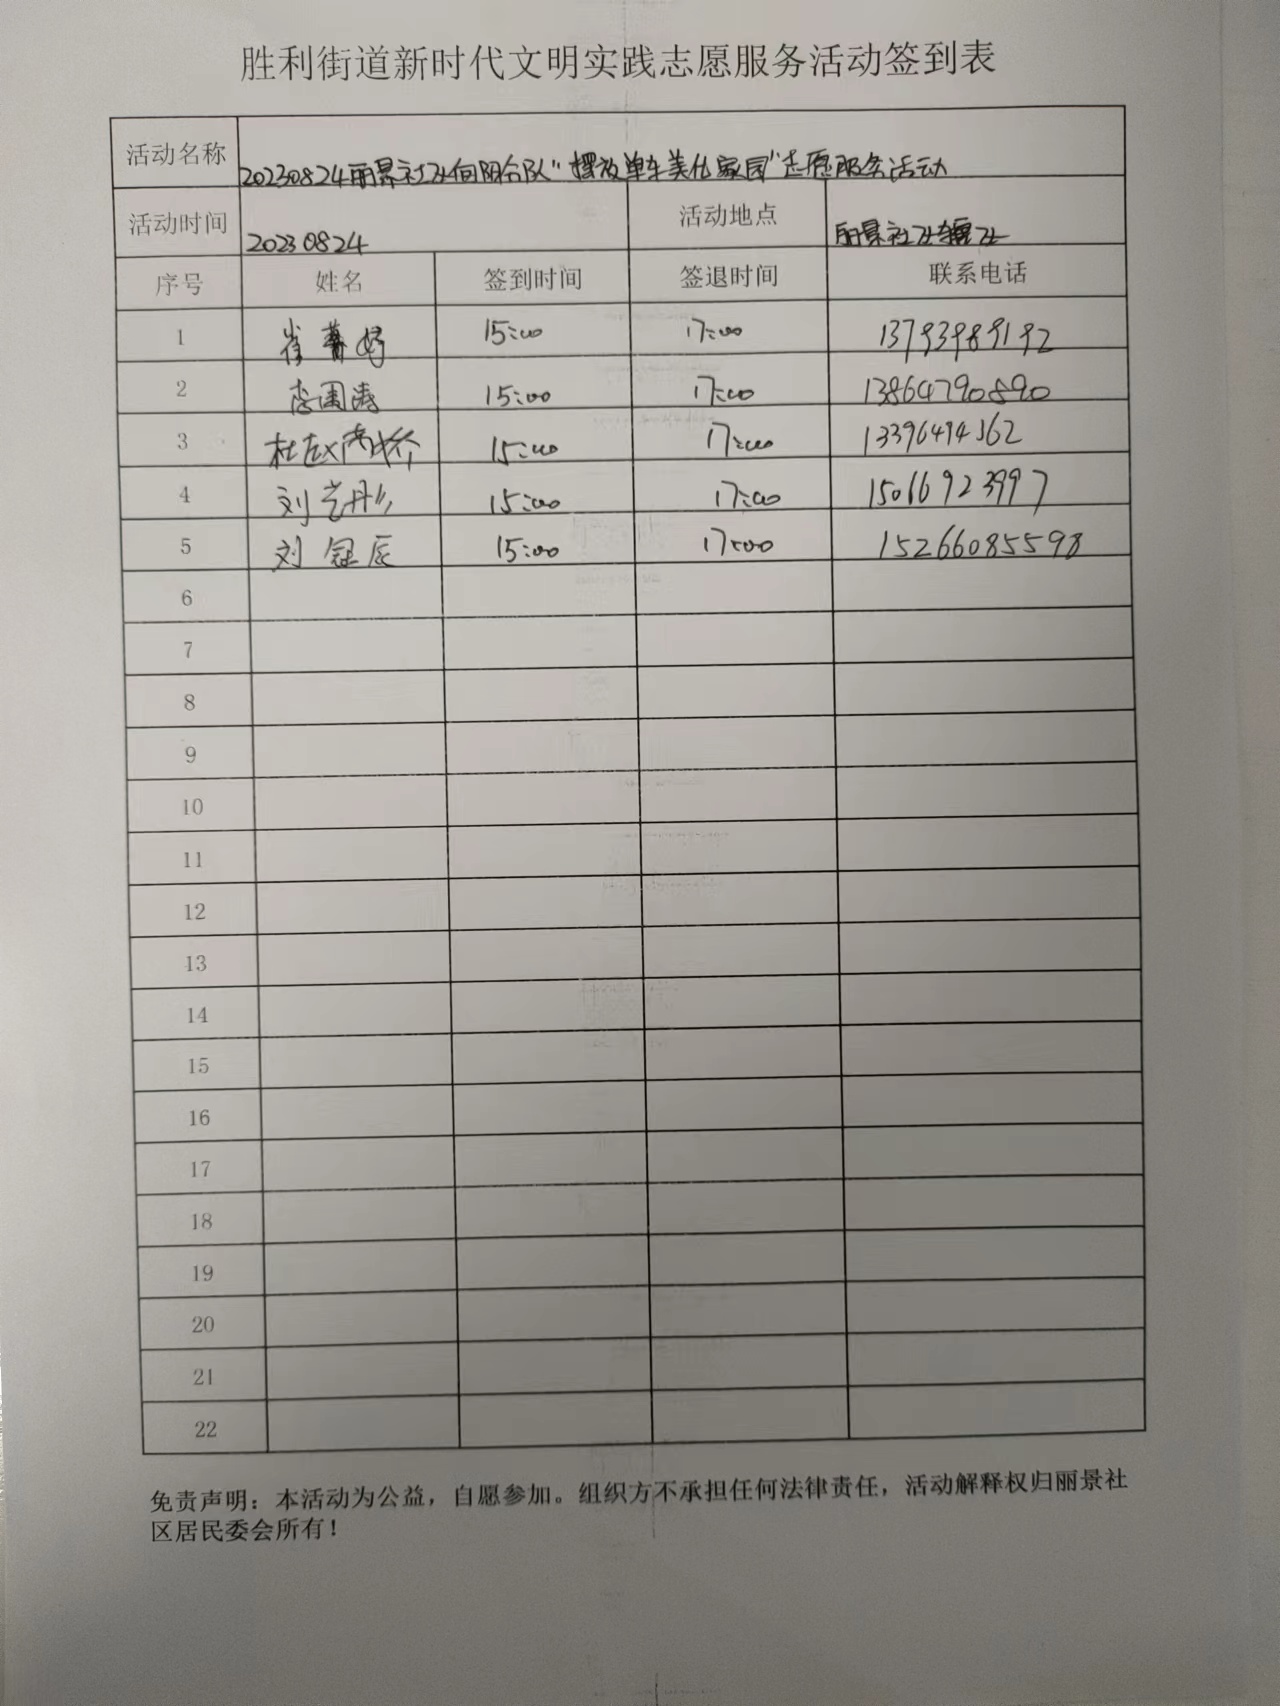 胜利街道新时代文明实践志愿服务活动签到表
活动名称 20230824丽景社区向阳分队"摆放单车美化家园"志愿服务活动
活动时间 20230824 活动地点 丽景社区辖区
序号 姓名 签到时间 签退时间 联系电话
1 崔 15:00 17:00 13793989192
2 李国涛 15:00 17:00 13864790890
3 杜 15:00 17:00 13396494362
4 刘艺彤 15:00 17:00 15066923997
5 刘冠辰 15:00 17:00 15266085598
6
7
8
9
10
11
12
13
14
15
16
17
18
19
20
21
22
免责声明：本活动为公益，自愿参加。组织方不承担任何法律责任，活动解释权归丽景社
区居民委会所有！